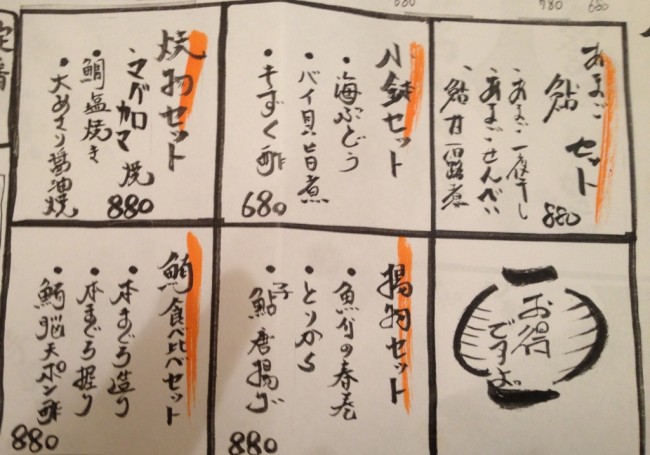 あまご
鮎 セット
・あまご一夜干し
・あまごせんべい
・鮎甘露煮
880
小鉢セット
・海ぶどう
・バイ貝旨煮
・もずく酢
680
焼物セット
・マグロカマ焼
・鯛塩焼き
・大あさり醤油焼
880
お得
ですよ
揚物セット
・とりから
・子鮎唐揚げ
880
鮪食べ比べセット
・本まぐろ造り
・本まぐろ握り
・鮪脳天ポン酢
880
780
680